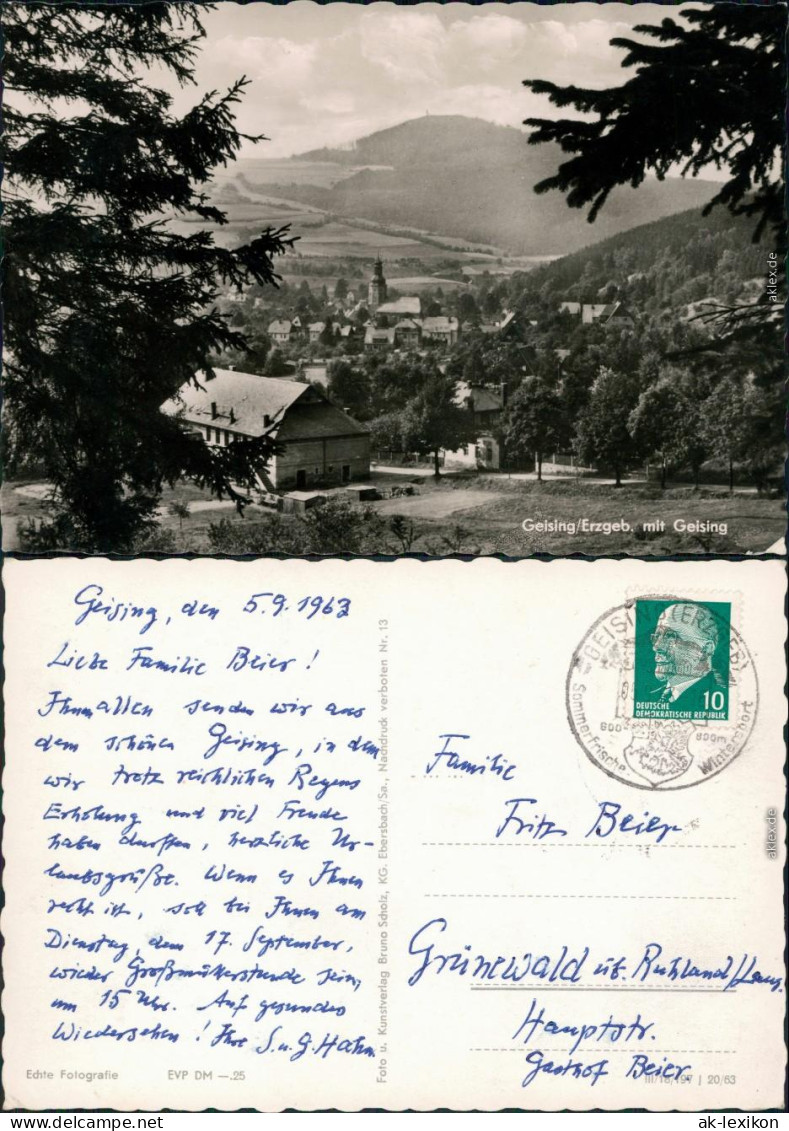 Geising/Erzgeb. mit Geising
aklex.de
Geising, den 5.9.1963
Liebe Familie Beier!
Ihnen allen senden wir aus
dem schönen Geising, in dem
wir trotz reichlichen Regens
Erholung und viel Freude
haben durften, herzliche Ur-
laubsgrüße. Wenn es Ihnen
recht ist, soll bei Ihnen am
Dienstag, dem 17. September,
wieder Großmütterstunde sein,
um 15 Uhr. Auf gesundes
Wiedersehen! Ihre S. u. G. Hahn
Echte Fotografie EVP DM —.25
Foto u. Kunstverlag Bruno Scholz, KG. Ebersbach/Sa., Nachdruck verboten Nr. 13
GEISING (ERZGEB)
Sommerfrische
Wintersport
600
800m
10
DEUTSCHE
DEMOKRATISCHE REPUBLIK
Familie
Fritz Beier
Grünewald üb. Ruhland/Laus.
Hauptstr.
Gasthof Beier
III/18/197 | 20/63
aklex.de
ak-lexikon